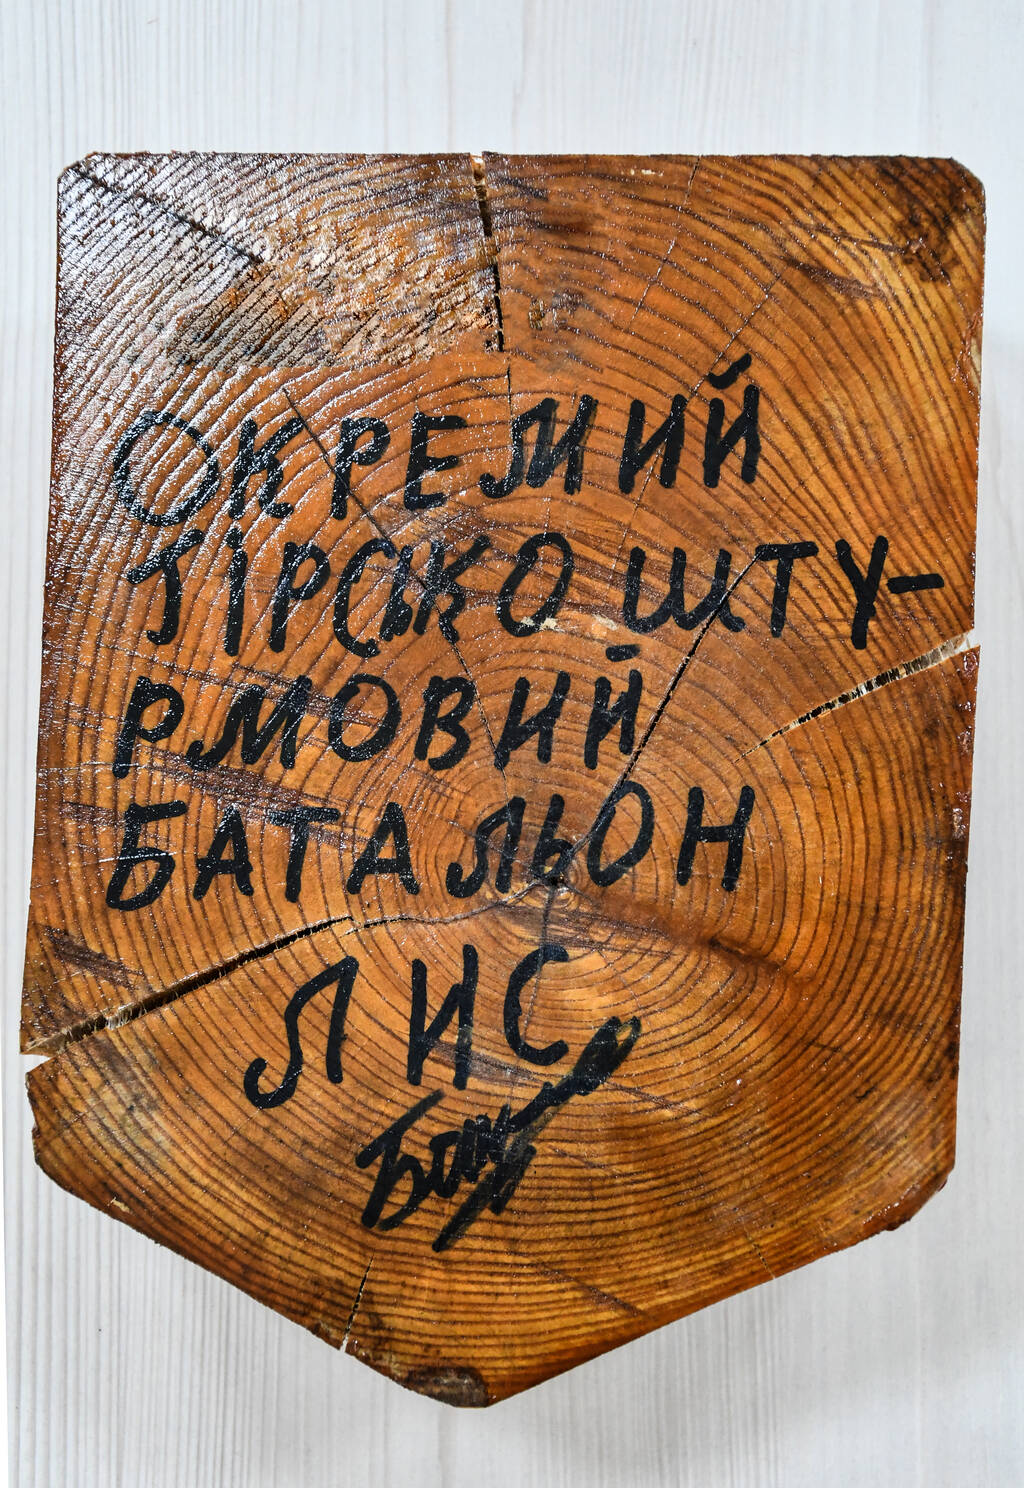 ОКРЕМИЙ
ГІРСЬКО ШТУ-
РМОВИЙ
БАТАЛЬОН
ЛИС